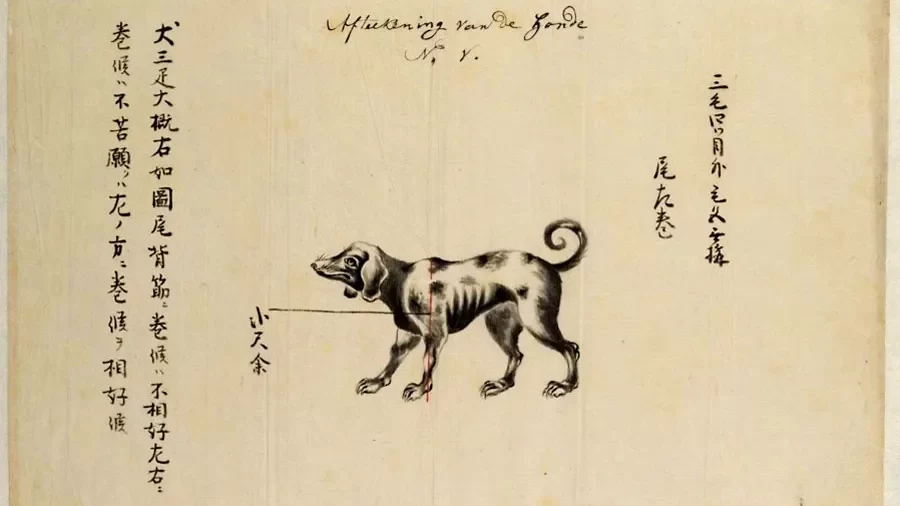 Afteekening van de Honde
No. V.
三毛
尾左巻
尺余
犬三疋大概右如圖尾背筋ニ巻候ハ不相好左右ニ
巻候ハ不苦願クハ左ノ方ニ巻候ヲ相好候